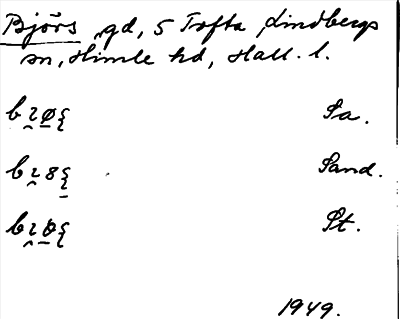 Björs gd, 5 Tofta, Lindbergs
sn, Himle hd, Hall. l.
Sa.
Sand.
St.
1949.